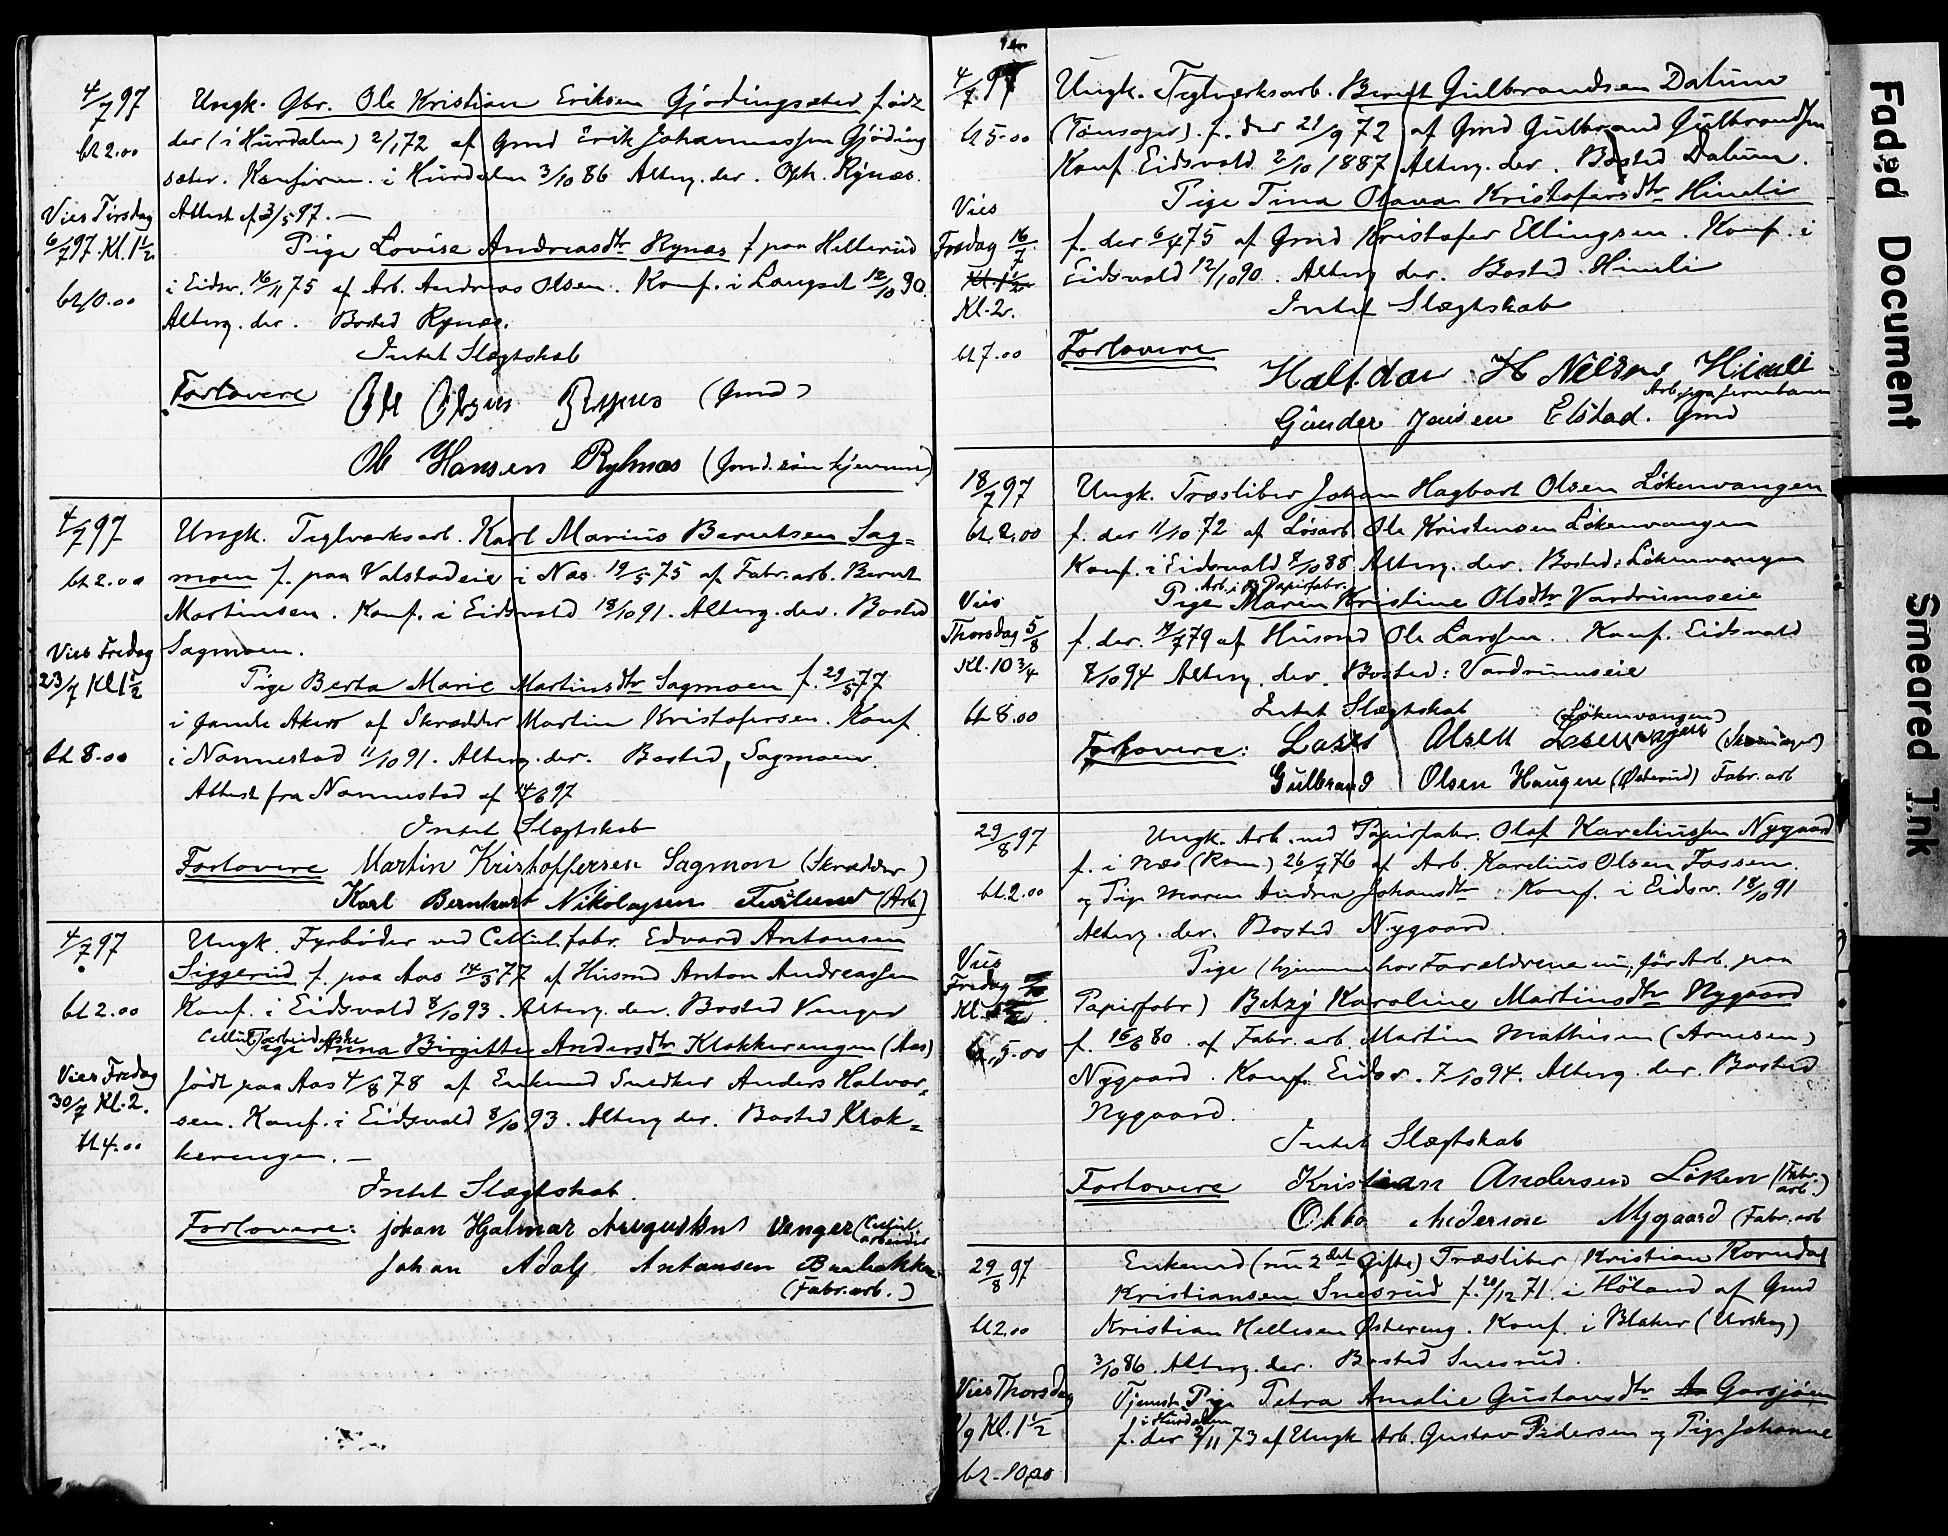 4/7 97
bt 2.00
Vies Tirsdag
6/7 97. Kl. 1 1/2
bt 10.00
Ungk. Gbr. Ole Kristian Eriksen Gjødingsæter født
der (i Hurdalen) 2/1 72 af Gmd Erik Johannessen Gjøding
sæter. Konfirm. i Hurdalen 3/10 86 Alterg. der. Oph. Rynæs.
Attest af 3/5 97. —
Pige Lovise Andreasdtr Rynæs f paa Helterud
i Eidsv. 16/11 75 af Arb. Andreas Olsen. Konf. i Langset 12/10 90.
Alterg. der. Bosted Rynæs.
Intet Slægtskab
Forlovere Ole Olsen Rynæs (Gmd)
Ole Hansen Rylnæs (Gmd. søn hjemme)
4/7 97
bt 2.00
Vies Fredag
23/7 Kl 1 1/2
bt 8.00
Ungk. Teglværksarb. Karl Marius Berntsen Sag=
moen f. paa Valstadeie i Næs 19/5 75 af Fabr. arb. Bernt
Martinsen. Konf. i Eidsvold 18/10 91. Alterg. der. Bosted
Sagmoen.
Pige Berta Marie Martinsdtr Sagmoen f. 29/5 77
i Gamle Aker af Skrædder Martin Kristofersen. Konf.
i Nannestad 11/10 91. Alterg. der. Bosted, Sagmoen.
Attest fra Nannestad af 14/6 97
Intet Slægtskab
Forlovere Martin Kristoffersen Sagmon (Skrædder)
Karl Bernhart Nikolaysen (Arb)
4/7 97
bt 2.00
Vies Fredag
30/7 Kl. 2.
bt 4.00
Ungk. Fyrbøder ved Cellul. fabr. Edvard Antonsen
Siggerud f. paa Aas 14/3 77 af Husmd Anton Andreassen
Konf. i Eidsvold 8/10 93. Alterg. der. Bosted Venger
Cellul. arbeiderske
Pige Anna Birgitte Andersdtr Klokkerengen (Aas)
født paa Aas 4/8 78 af Enkemd Snedker Anders Halvor=
sen. Konf. i Eidsvold 8/10 93. Alterg der. Bosted Klok=
kerengen. —
Intet Slægtskab.
Forlovere: Johan Hjalmar Augustinus Venger (Cellul. arbeider
Johan Adolf Antonsen Bunbakken
(Fabr. arb.)
4/7 97
bt 5.00
Vies
Fredag 16/7
Kl 1 1/2
Kl. 2.
bt 7.00
Ungk. Teglværksarb. Bernt Gulbrandsen Dalum
(Tømsager). f. der 21/9 72 af Gmd Gulbrand Gulbrandsen
Konf Eidsvold 2/10 1887 Alterg. der. Bosted Dalum.
Pige Tina Olava Kristofersdtr Himli
f. der 6/4 75 af Gmd Kristofer Ellingsen. Konf. i
Eidsvold 12/10 90. Alterg der. Bosted Himli
Intet Slægtskab
Forlovere
Halfdan H Nilsen Himli
Arb. paa Jernbanen
Gunder Jensen Elstad. Gmd
18/7 97
bt. 2.00
Vies
Thorsdag 5/8
Kl. 10 3/4
bt 8.00
Ungk. Træsliber Johan Hagbart Olsen Løkenvangen
f. der 11/10 72 af Løsarb. Ole Kristensen Løkenvangen
Konf. i Eidsvold 8/10 88 Alterg. der. Bosted: Løkenvangen
Arb. i Papirfabr.
Pige Maren Kristine Olsdtr Vardrumseie
f. der. 14/7 79 af Husmd Ole Larssen. Konf. Eidsvold
8/10 94 Alterg. der. Bosted: Vardrumseie
Intet Slægtskab (Løkenvangen)
Forlovere: Lars Olsen
Gulbrand Olsen Haugen (Østerud) Fabr. arb
29/8 97
bt. 2.00
Vies
Fredag
Kl.
bt. 5.00
Ungk. Arb. ved Papirfabr. Olaf Kareliussen Nygaard
f. i Næs (Rom.) 26/7 76 af Arb. Karelius Olsen Fossen
og Pige Maren Andrea Johansdtr. Konf. i Eidsv. 18/10 91
Alterg. der. Bosted Nygaard.
Pige (hjemme hos Forældrene nu, før Arb. paa
Papirfabr) Betzy Karoline Martinsdtr Nygaard
f. 16/6 80 af Fabr. arb. Martin Mathisen (Arnesen)
Nygaard. Konf. Eidsv. 7/10 94. Alterg. der. Bosted
Nygaard.
Intet Slægtskab
Forlovere Kristian Andersen Løken (Fabr. arb.)
Otto Anderson Nygaard (Fabr. arb
29/8 97
bt 2.00
Vies Thorsdag
/9 Kl. 1 1/2
bt. 10.00
Enkemd (nu 2det Gifte) Træsliber Kristian Korndal
Kristiansen Snesrud f. 20/12 71 i Høland af Gmd
Kristian Hellesen Østereng. Konf. i Blaker (Urskog)
3/10 86. Alterg. der. Bosted Snesrud.
Tjenest. Pige Petra Amalie Gustavsdtr Garsjøen
i Hurdalen
f. der 2/11 73 af Ungk Arb. Gustav Pedersen og Pige Johanne
Faded Document
Smeared Ink